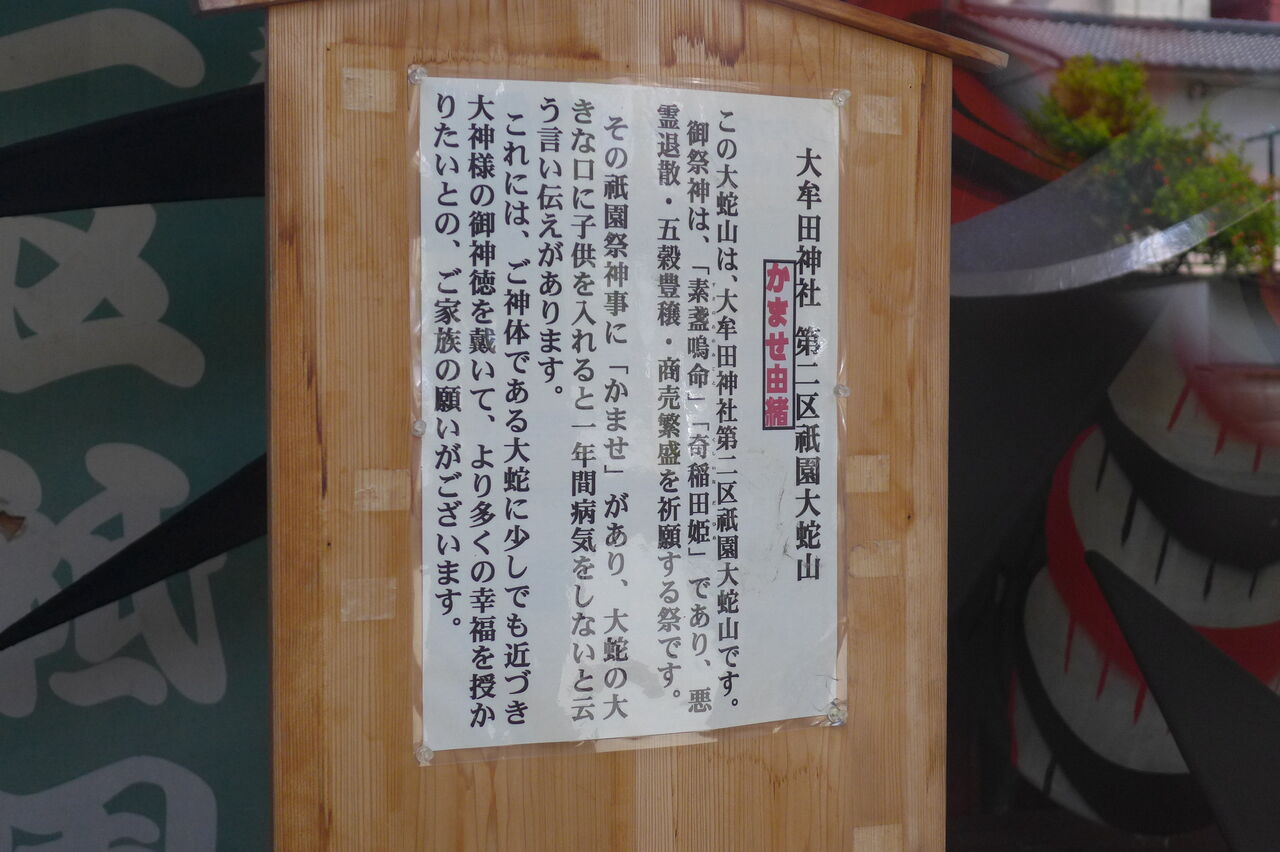 大牟田神社 第二区祇園大蛇山
かませ由緒
この大蛇山は、大牟田神社第二区祇園大蛇山です。
御祭神は、「素盞嗚命」「奇稲田姫」であり、悪
霊退散・五穀豊穣・商売繁盛を祈願する祭です。
その祇園祭神事に「かませ」があり、大蛇の大
きな口に子供を入れると一年間病気をしないと云
う言い伝えがあります。
これには、ご神体である大蛇に少しでも近づき
大神様の御神徳を戴いて、より多くの幸福を授か
りたいとの、ご家族の願いがございます。